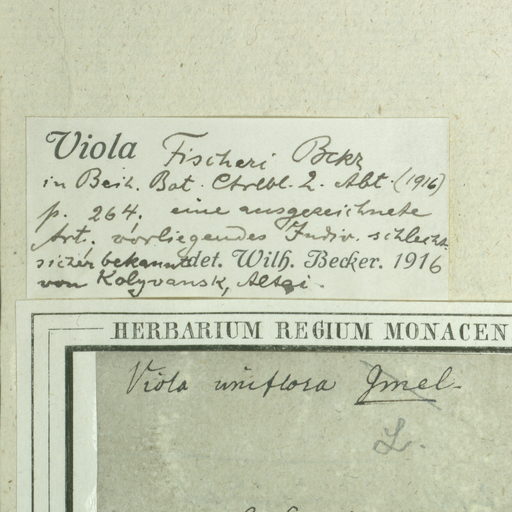 Viola Fischeri Bckr
in Beih. Bot. Ctrlbl. 2. Abt. (1916)
p. 264. eine ausgezeichnete
Art. vorliegendes Indiv. schlecht.
sicher bekannt det. Wilh. Becker. 1916
von Kolyvansk, Altai.
HERBARIUM REGIUM MONACEN
Viola uniflora Gmel.
L.